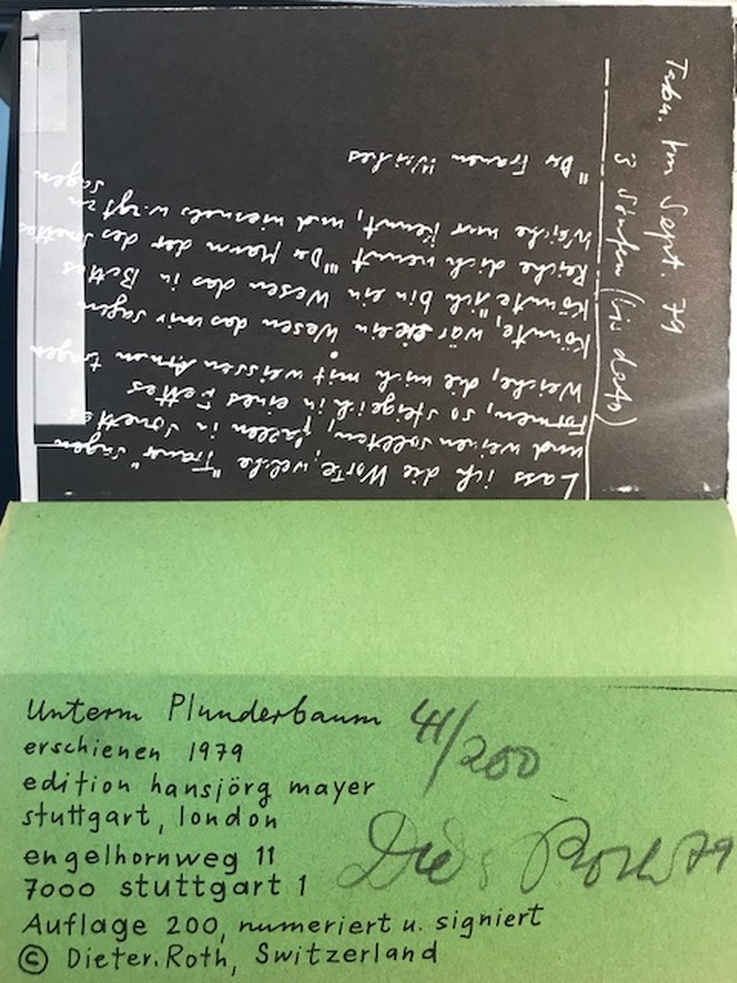 3 Stufen (bis dato)
Im Sept. 79
Lass ich die Worte, welche "Trauer" sagen
und weinen sollten, fallen in Sonettes
Formen, so steige ich in eines Fettes
Weiche, die mich mit weissen Armen tragen
Könnte, wär sie ein Wesen das mir sagen
Könnte "ich bin ein Wesen das in Bettes
Reiche dich nennt "Du Mann der des Sonettes
Weiche nur kennt, und niemals wagt zu sagen
"Du Frauen Weiches
Unterm Plunderbaum
41/200
erschienen 1979
edition hansjörg mayer
stuttgart, london
engelhornweg 11
7000 stuttgart 1
Roth 79
Auflage 200, numeriert u. signiert
© Dieter.Roth, Switzerland